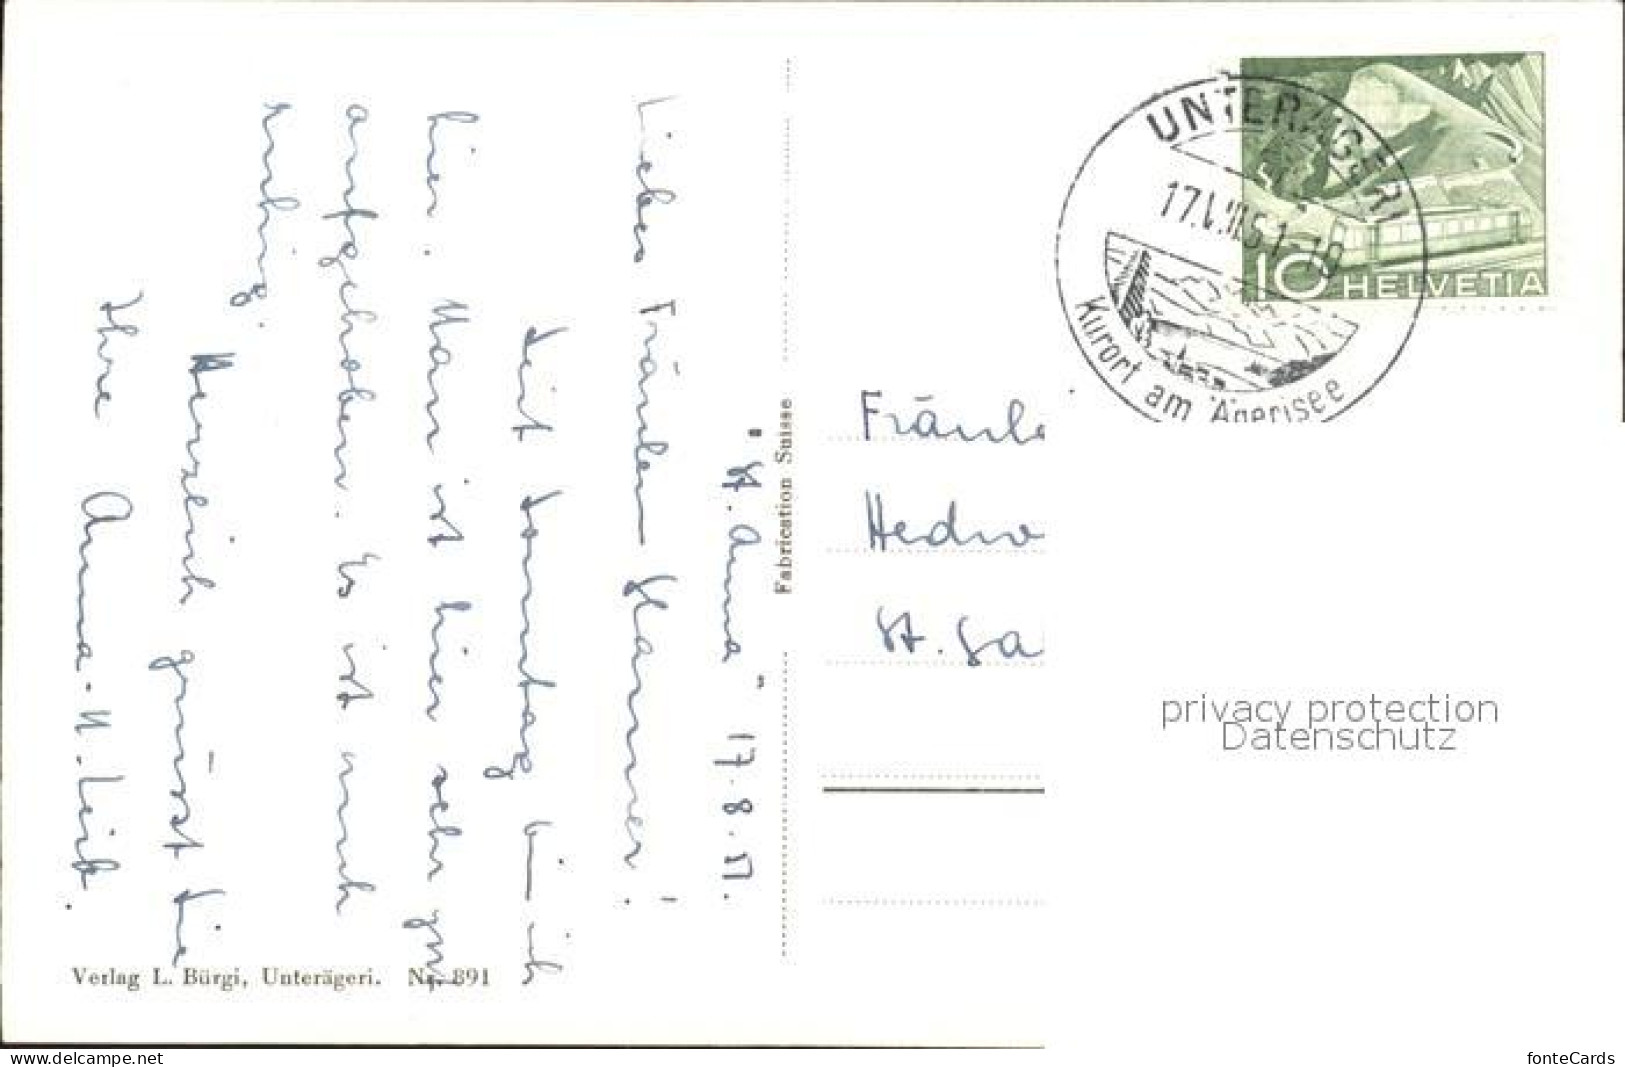 "St. Anna" 17.8.51.
Liebes Fräulein Hammer!
Seit Sonntag bin ich
hier. Man ist hier sehr gut
aufgehoben. Es ist auch
ruhig.
Herzlich grüsst Sie
Ihre Anna
Verlag L. Bürgi, Unterägeri. Nr. 891
Fabrication Suisse
UNTERÄGERI
17.VIII.51-10
Kurort am Ägerisee
10 HELVETIA
Fräule
Hedw
St. Ga
privacy protection
Datenschutz
www.delcampe.net
fonteCards